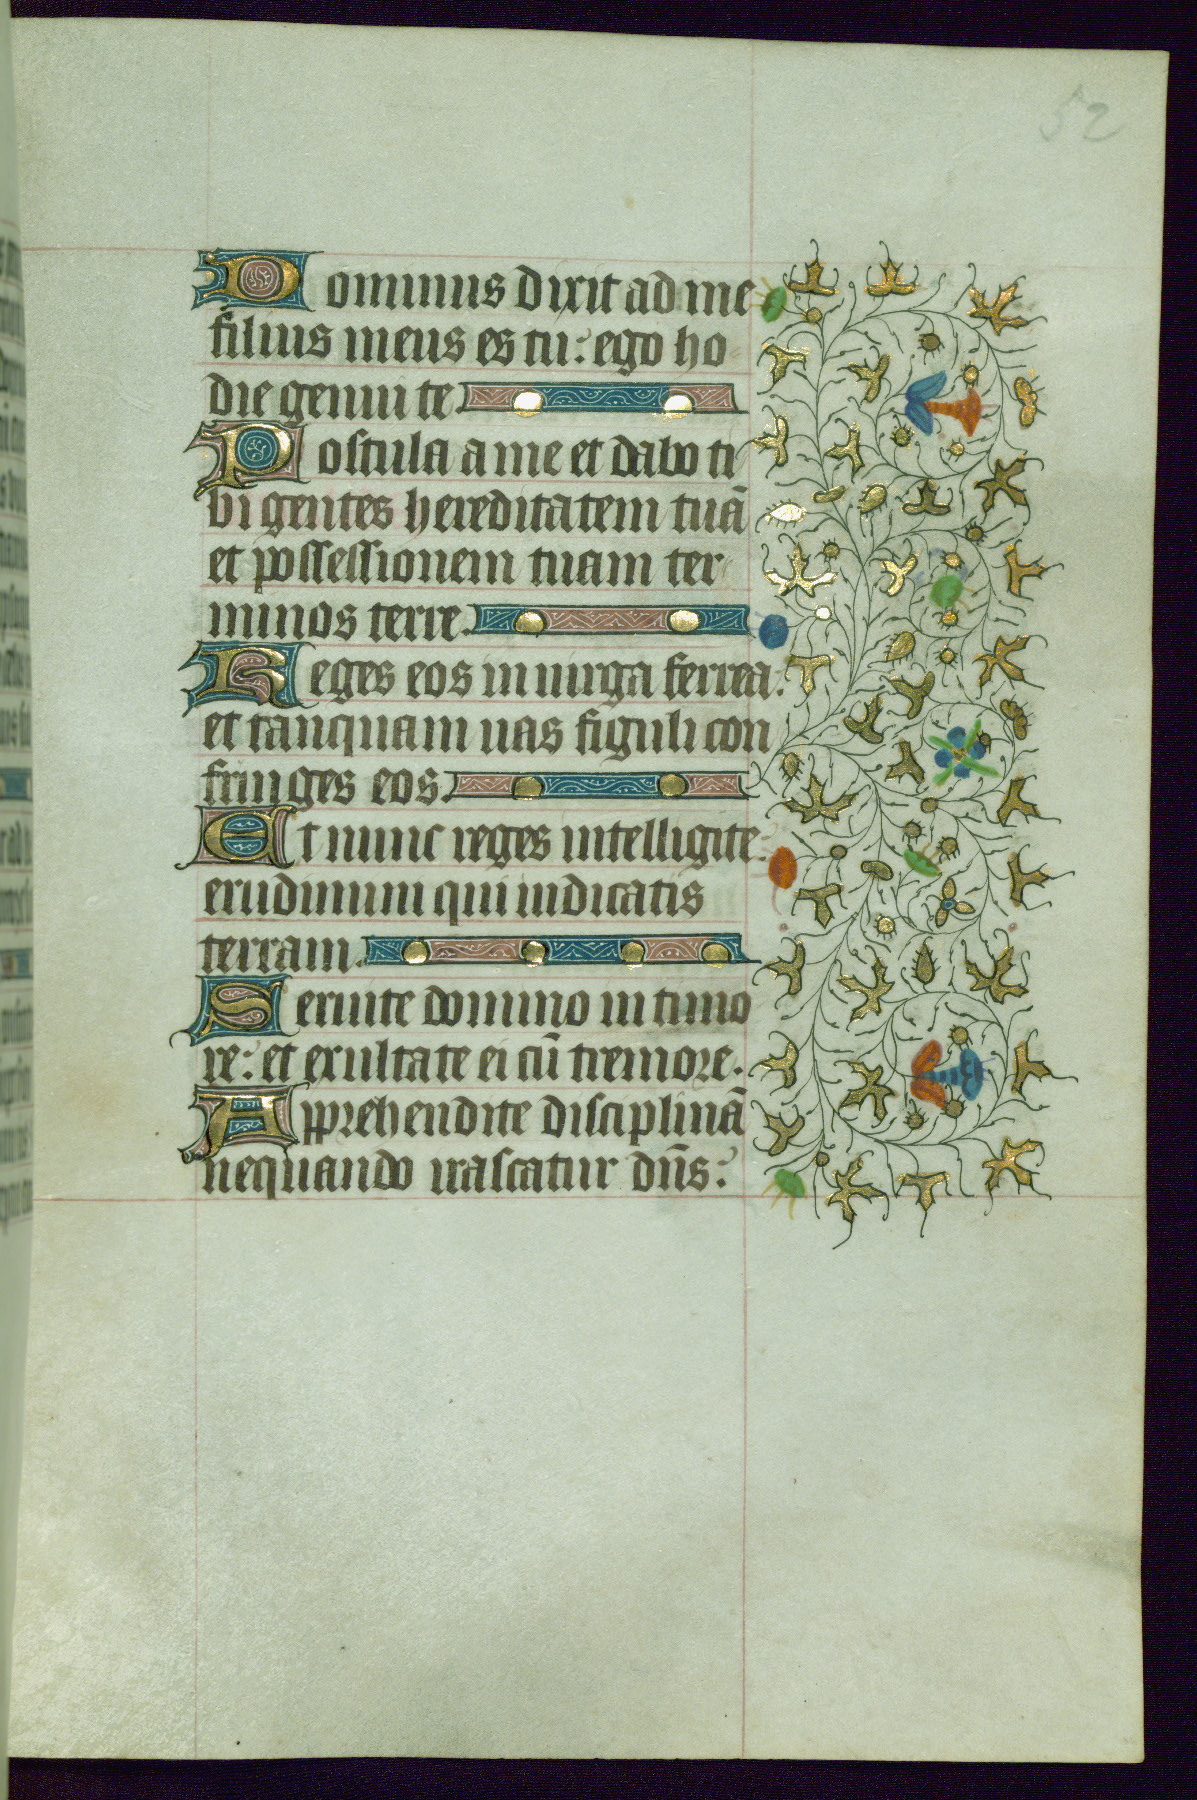 52
Dominus dixit ad me
filius meus es tu: ego ho
die genui te
Postula a me et dabo ti
bi gentes hereditatem tuā
et possessionem tuam ter
minos terre.
Reges eos in uirga ferrea:
et tanquam uas figuli con
fringes eos.
Et nunc reges intelligite:
erudimini qui iudicatis
terram.
Seruite domino in timo
re: et exultate ei cū tremore.
Apprehendite disciplinā
nequando irascatur dn̄s: